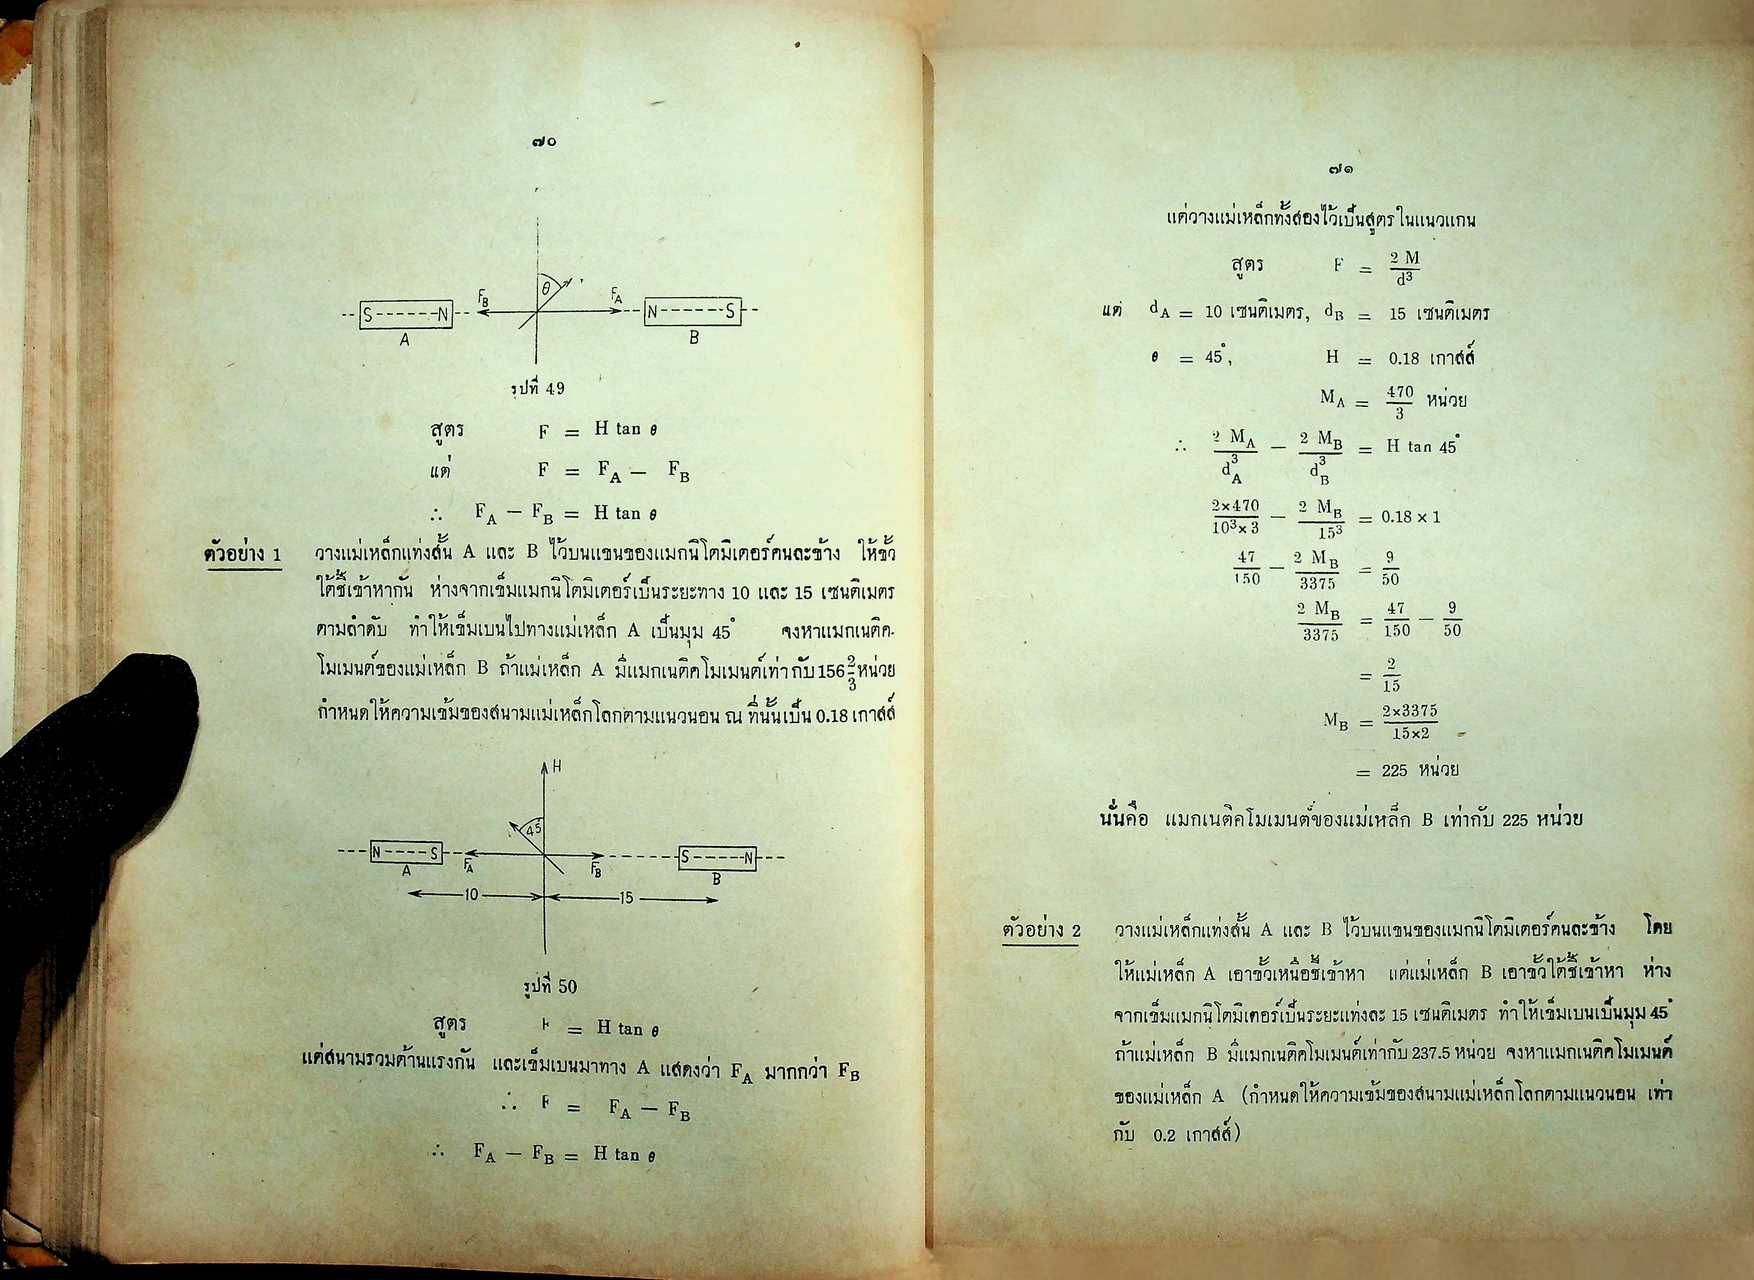 ๗๐
θ
F_B
F_A
S N
N S
A
B
รูปที่ 49
สูตร F = H tan θ
แต่ F = F_A − F_B
∴ F_A − F_B = H tan θ
ตัวอย่าง 1 วางแม่เหล็กแท่งสั้น A และ B ไว้บนแขนของแมกนิโตมิเตอร์คนละข้าง ให้ขั้ว
ใต้ชี้เข้าหากัน ห่างจากเข็มแมกนิโตมิเตอร์เป็นระยะทาง 10 และ 15 เซนติเมตร
ตามลำดับ ทำให้เข็มเบนไปทางแม่เหล็ก A เป็นมุม 45° จงหาแมกเนติค-
โมเมนต์ของแม่เหล็ก B ถ้าแม่เหล็ก A มีแมกเนติคโมเมนต์เท่ากับ 156 2/3 หน่วย
กำหนดให้ความเข้มของสนามแม่เหล็กโลกตามแนวนอน ณ ที่นั้นเป็น 0.18 เกาส์ส์
H
45°
N S
S N
A
F_A
F_B
B
10
15
รูปที่ 50
สูตร F = H tan θ
แต่สนามรวมต้านแรงกัน และเข็มเบนมาทาง A แสดงว่า F_A มากกว่า F_B
∴ F = F_A − F_B
∴ F_A − F_B = H tan θ
๗๑
แต่วางแม่เหล็กทั้งสองไว้เป็นสูตรในแนวแกน
สูตร F = 2 M / d³
แต่ d_A = 10 เซนติเมตร, d_B = 15 เซนติเมตร
θ = 45°, H = 0.18 เกาส์ส์
M_A = 470/3 หน่วย
∴ 2 M_A / d_A³ − 2 M_B / d_B³ = H tan 45°
2×470 / 10³×3 − 2 M_B / 15³ = 0.18 × 1
47/150 − 2 M_B / 3375 = 9/50
2 M_B / 3375 = 47/150 − 9/50
= 2/15
M_B = 2×3375 / 15×2
= 225 หน่วย
นั่นคือ แมกเนติคโมเมนต์ของแม่เหล็ก B เท่ากับ 225 หน่วย
ตัวอย่าง 2 วางแม่เหล็กแท่งสั้น A และ B ไว้บนแขนของแมกนิโตมิเตอร์คนละข้าง โดย
ให้แม่เหล็ก A เอาขั้วเหนือชี้เข้าหา แต่แม่เหล็ก B เอาขั้วใต้ชี้เข้าหา ห่าง
จากเข็มแมกนิโตมิเตอร์เป็นระยะแท่งละ 15 เซนติเมตร ทำให้เข็มเบนเป็นมุม 45°
ถ้าแม่เหล็ก B มีแมกเนติคโมเมนต์เท่ากับ 237.5 หน่วย จงหาแมกเนติคโมเมนต์
ของแม่เหล็ก A (กำหนดให้ความเข้มของสนามแม่เหล็กโลกตามแนวนอน เท่า
กับ 0.2 เกาส์ส์)